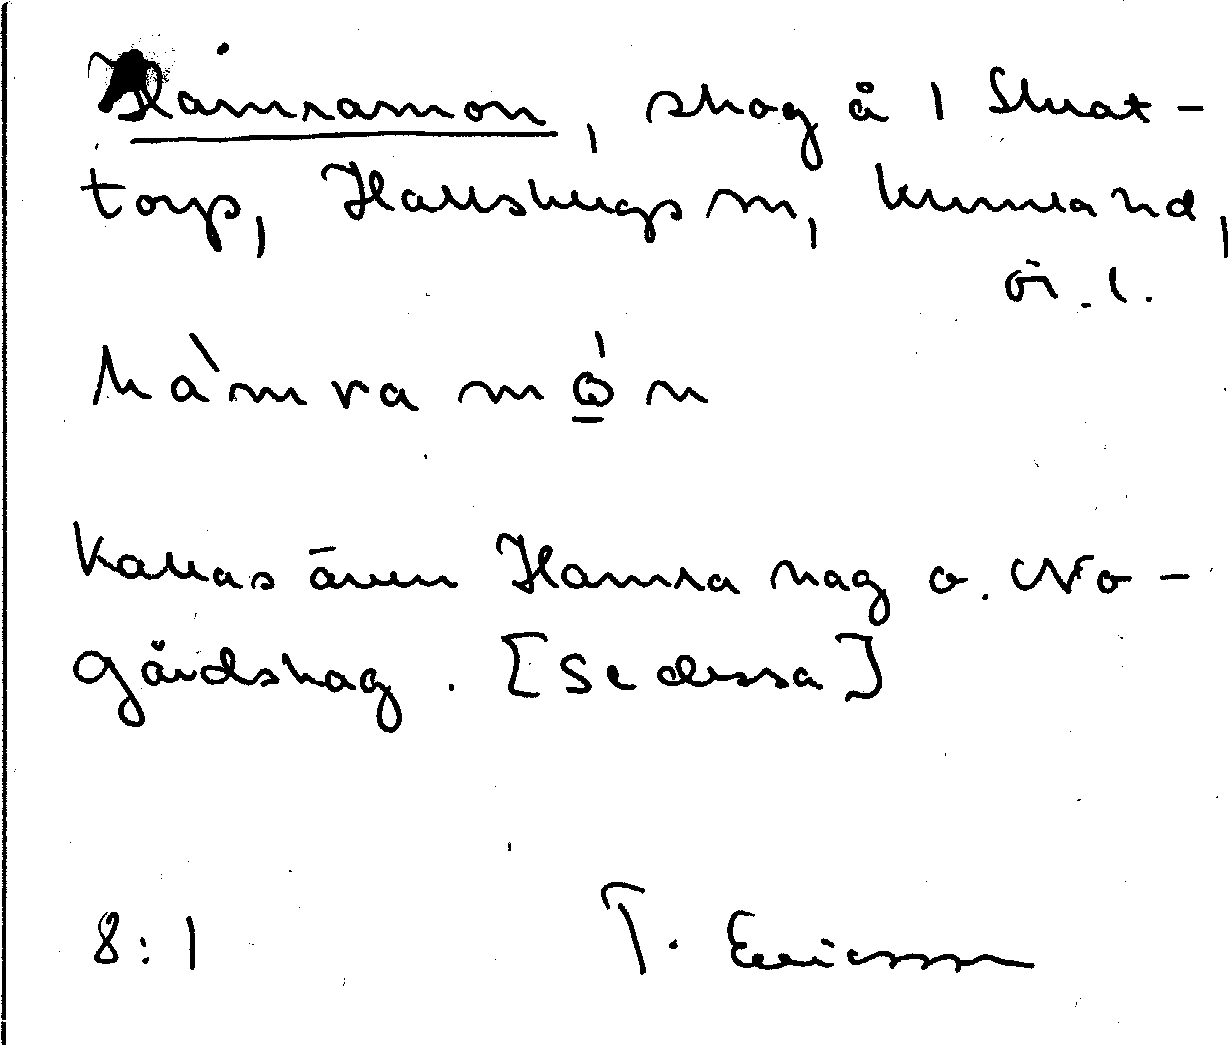 Hamramon, skog å 1 Skat-
torp, Hallsbergs sn, Kumla hd,
ör. l.
hàmra mọ́n
Kallas även Hamra hag o. No-
gårdshag. [Se dessa]
8:1 T. Ericsson